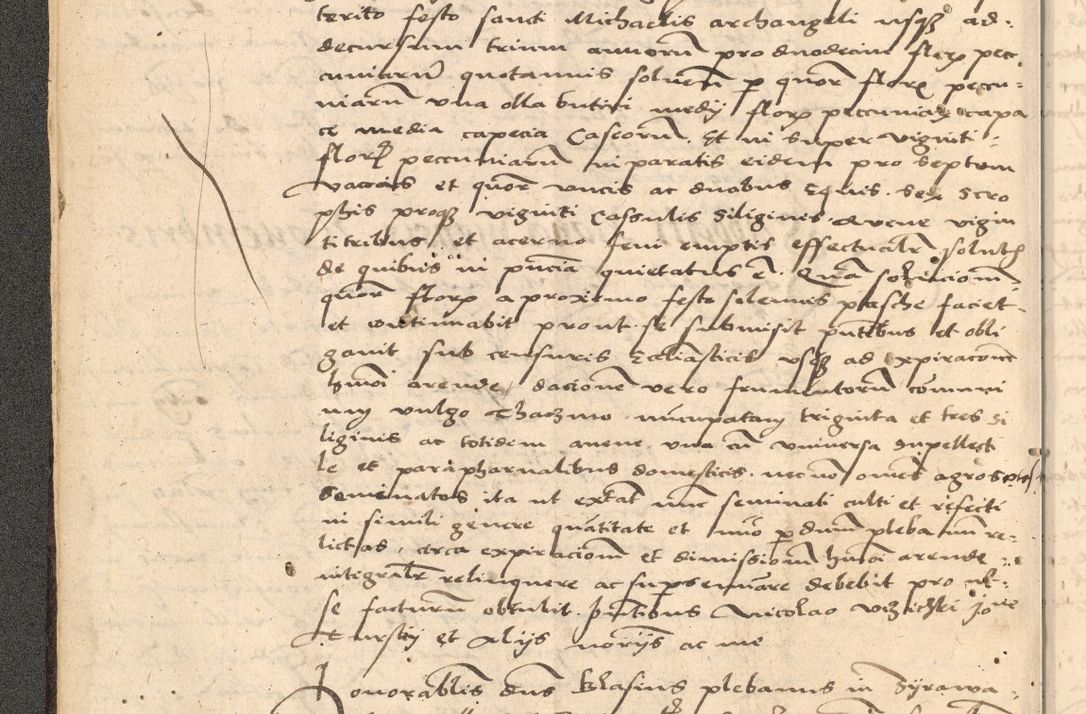 terito festo sancti Michaelis archangeli usqȝ ad-
decursum trium annorum pro duodecim florȝ pec-
cuniarum quotannis solven p quor florȝ peccu-
niarum una olla butiri medij florȝ pecuniarȝ capa
ce media capecia Caseorum. Et in super viginti
florȝ peccuniarum in paratis eidem pro septem
vaccis et quor uncis ac duabus Equis. Sex scro
phis proqȝ viginti Cassulis siliginis avene vigin
ti tribus. et acervo feni emptis effectualr solutȝ
de quibus in pncia quietatus e. Quā solucionem
quor florȝ a proximo festo solemnis pasche faciet
et continuabit prout se submisit pntibus et obli
gavit sub censuris Ecclīasticis usqȝ ad expiracone
hmoi arende, dacione vero frumentorum cōmuni
vulgo nuncupatam triginta et tres si
liginis ac totidem avene. una cū universa supellecti
le et parapharnalibus domesticis. necnō omēs agros
seminatos ita ut extāt nunc seminati culti et refecti
in simili genere quātitate et p dnum plebanum re-
lictas. circa expiracionem et dimissionem hmoi arende
integralr relinquere ac debebit pro ut
se facturum obtulit. pntibus Nicolao Joāne
et Alijs ac me
Honorabilis dns Blasius plebanus in